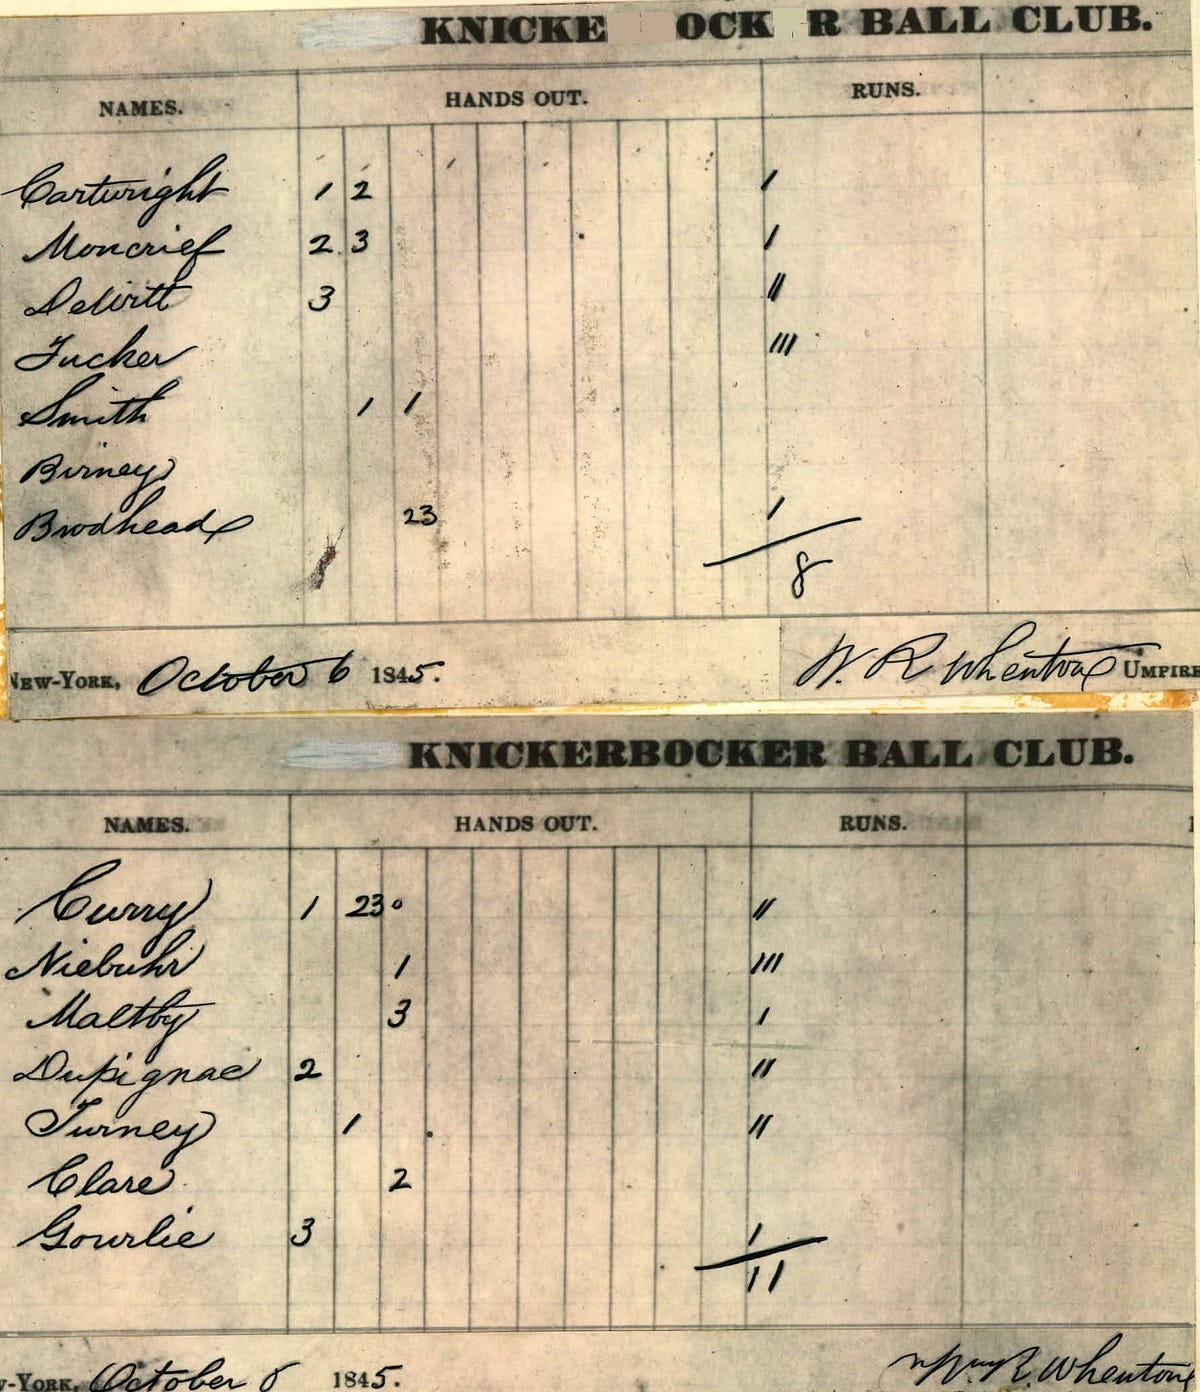 KNICKE OCK R BALL CLUB.
NAMES. HANDS OUT. RUNS.
Cartwright 1 2 /
Moncrief 2 3 /
DeWitt 3 //
Tucker ///
Smith 1 1
Birney
Brodhead 23 /
8
New-York, October 6 1845. W. R. Wheaton Umpire
KNICKERBOCKER BALL CLUB.
NAMES. HANDS OUT. RUNS.
Curry 1 23 //
Niebuhr 1 ///
Maltby 3 /
Dupignac 2 //
Turney 1 //
Clare 2
Gourlie 3 /
11
w-York, October 6 1845. R. Wheaton